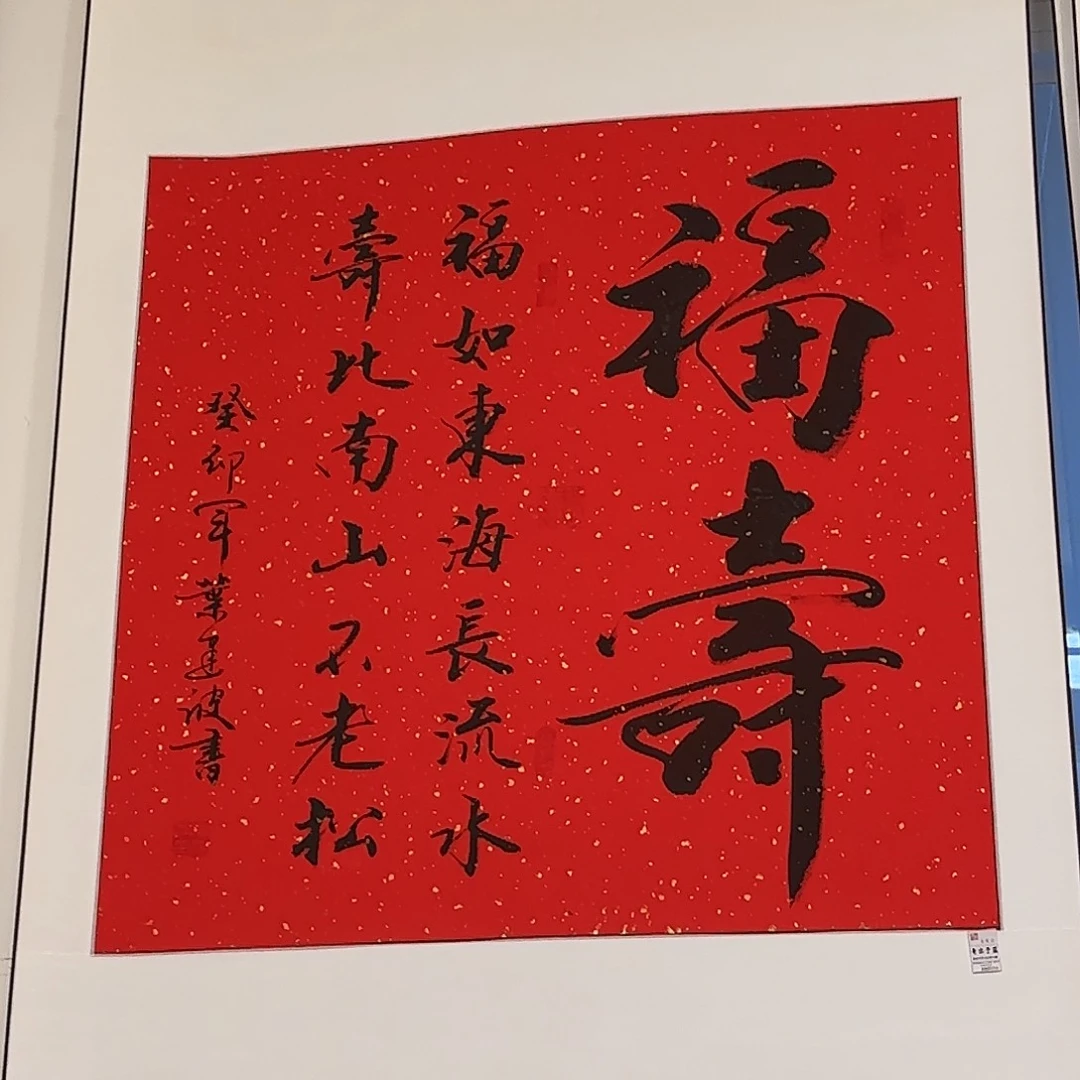 福壽
福如東海長流水
壽比南山不老松
癸卯年葉建波書